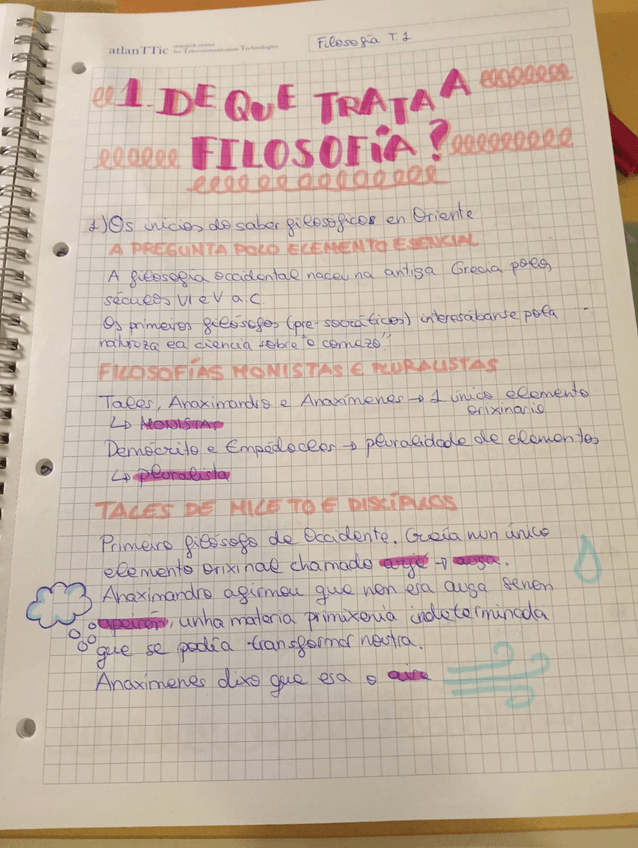 atlanTTic research center for Telecommunication Technologies
Filosofía T.1
1. DE QUE TRATA A
FILOSOFÍA?
1) Os inicios do saber filosofico en Oriente
A PREGUNTA POLO ELEMENTO ESENCIAL
A filosofia occidental naceu na antiga Grecia polos
séculos VI e V a.C.
Os primeiros filósofos (pre-socráticos) interesábanse pola
natureza e a ciencia sobre "o comezo".
FILOSOFÍAS MONISTAS E PLURALISTAS
Tales, Anaximandro e Anaxímenes → 1 único elemento
orixinario
↳ MONISTAS
Demócrito e Empédocles → pluralidade de elementos
↳ pluralista
TALES DE MILETO E DISCÍPULOS
Primeiro filósofo de Occidente. Creía nun único
elemento orixinal chamado arjé → auga.
Anaximandro afirmou que non era auga senon
apeirón, unha materia primixenia indeterminada
que se podía transformar noutra.
Anaxímenes dixo que era o aire